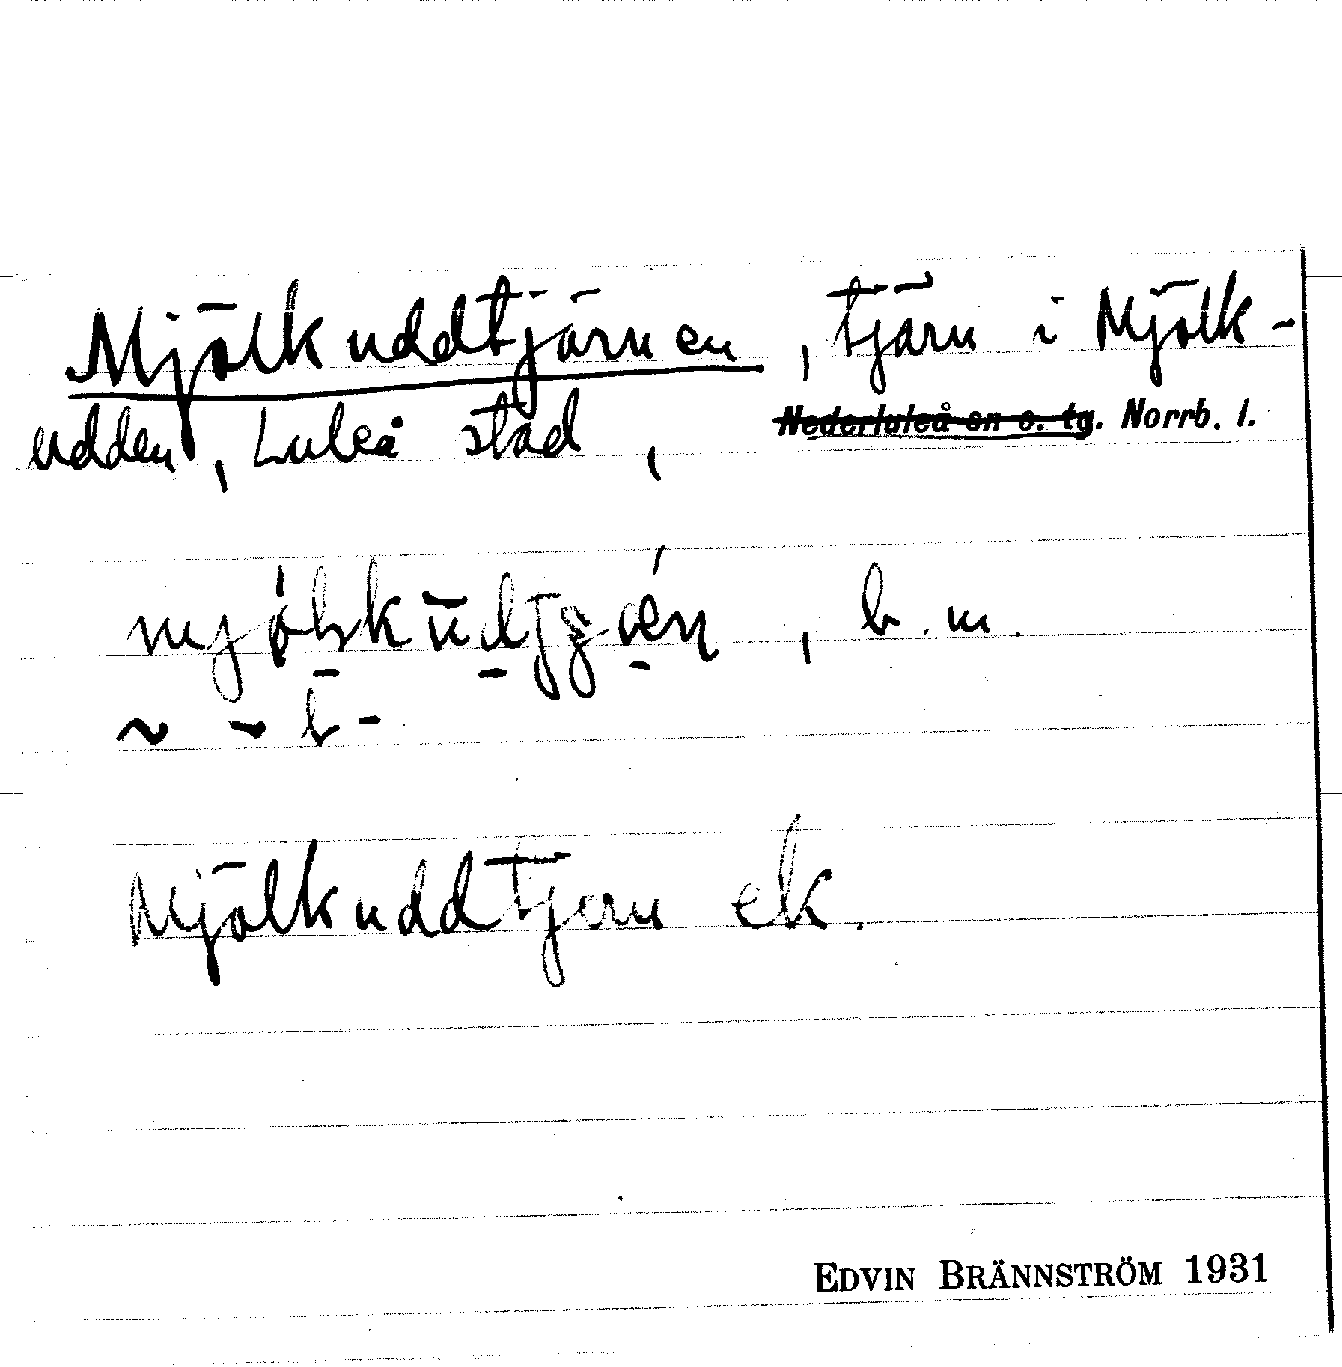 Mjölkuddtjärnen, tjärn i Mjölk-
udden, Luleå stad, Nederluleå sn o. tg. Norrb. l.
b. m.
Mjölkuddtjern ek.
EDVIN BRÄNNSTRÖM 1931